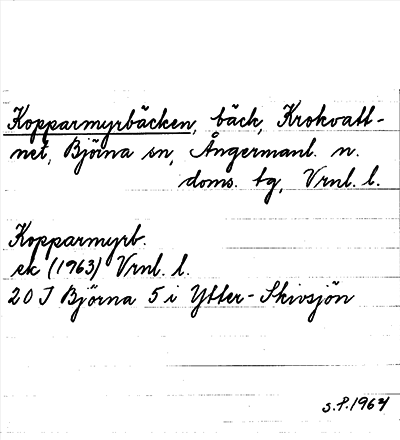 Kopparmyrbäcken, bäck, Krokvatt-
net, Björna sn, Ångermanl. n.
doms. tg, Vrnl. l.
Kopparmyrb.
ek (1963) Vrnl. l.
20 J Björna 5 i Ytter-Skivsjön
S.P. 1967